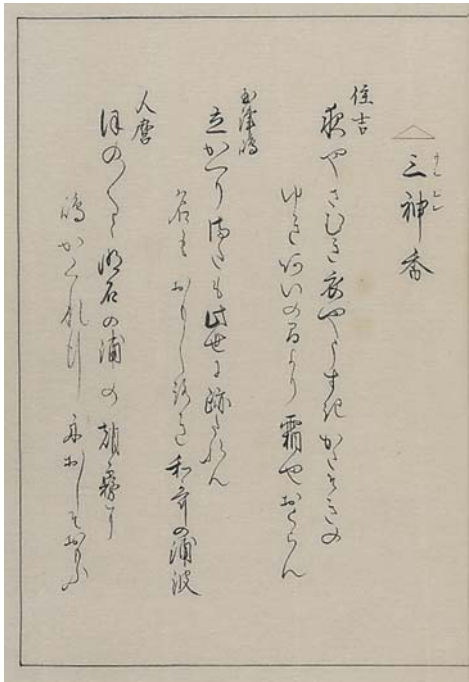 三神香
住吉
夜やさむき衣やうすきかさゝきの
ゆきあいの間より霜やおくらん
玉津嶋
立かへりまたも此世に跡たれん
名もおもしろき和哥の浦波
人麿
ほの〱と明石の浦の朝霧に
嶋かくれ行舟おしそおもふ